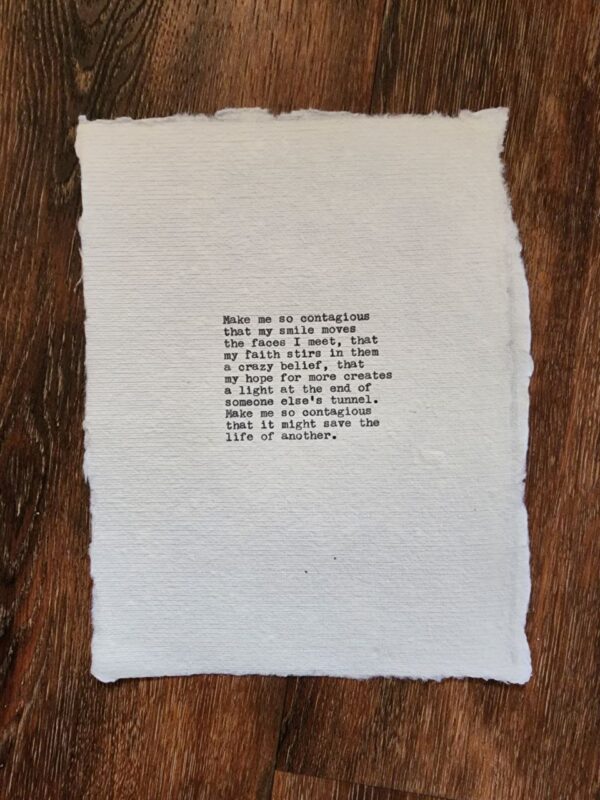 Make me so contagious
that my smile moves
the faces I meet, that
my faith stirs in them
a crazy belief, that
my hope for more creates
a light at the end of
someone else's tunnel.
Make me so contagious
that it might save the
life of another.